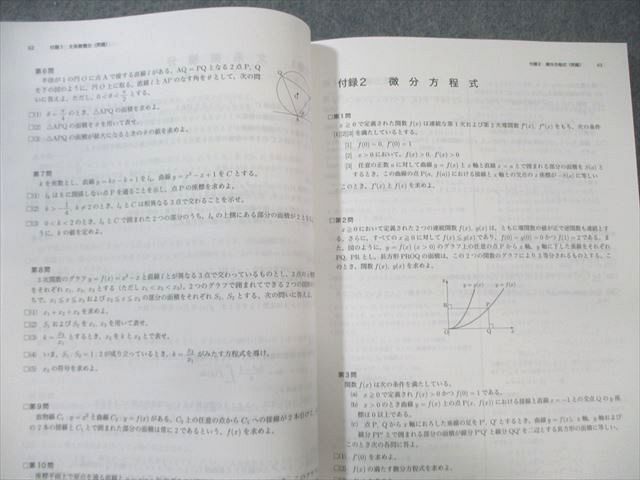 62
付録1
第6問
半径が1の円Oに点Aで接する直線lがある。AQ=PQとなる2点P, Q
を下の図のように，円O上に取る。直線lとAPのなす角をθとして，次の問
いに答えよ。
□(1) のとき，△APQの面積を求めよ。
□(2) △APQの面積をθを用いて表せ。
□(3) △APQの面積が最大になるときのθの値を求めよ。
第7問
kを実数とし，直線y=kx−k+1をlk，曲線y=x³−x+1をCとする。
□(1) lkはkに関係しない点Pを通ることを示し，点Pの座標を求めよ。
□(2) k≠2のとき，lkとCは相異なる3点で交わることを示せ。
□(3) 0<k<2のとき，lkとCで囲まれた2つの部分のうち，lkの上側にある部分の面積が
に，kの値を定めよ。
第8問
3次関数のグラフy=x³−xと直線lとが異なる3点で交わっているものとし，
をそれぞれx₁, x₂, x₃とする（ただしx₁<x₂<x₃）。2つのグラフで囲まれてできる2つの
ちで，x₁≦x≦x₂およびx₂≦x≦x₃の部分の面積をそれぞれS₁, S₂とする。次の問いに答えよ。
□(1) x₁+x₂+x₃を求めよ。
□(2) S₁およびS₂をx₁, x₃を用いて表せ。
□(3) とするとき，x₁をkとx₃とで表せ。
□(4) いま，S₁:S₂=1:2が成り立っているとき，がみたす方程式を導け。
□(5) x₂の符号を求めよ。
□第9問
放物線C₁:y=x²と曲線C₂:y=f(x)がある。C₂上の任意の点からC₁への接線が2本引け
の2本の接線とC₁とで囲まれた部分の面積は常に2であるという。f(x)を求めよ。
□第10問
63
付録2　微分方程式
□第1問
x≧0で定義された関数f(x)は連続な第1次および第2次導関数f′(x), f″(x)をもち，次の条件
[1][2][3]を満たしているとする。
[1] f(0)=0, f′(0)=1
[2] x>0において，f(x)>0, f′(x)>0
[3] 任意の正数aに対して曲線y=f(x)とx軸と直線x=aとで囲まれる部分の面積をS(a)と
するとき，この曲線の点P(a, f(a))における接線とx軸との交点の
に等しい
このとき，f′(x)とf(x)を求めよ。
□第2問
x≧0において定義された2つの連続関数f(x), g(x)は，ともに導関数の値が正で逆関数も連続と
する。さらに，すべてのx≧0に対してf(x)≦g(x)であり，f(0)=g(0)=0かつf(1)=2である。ま
た，図のように，y=f(x)(x>0)のグラフ上の任意の点Pからx軸，y軸に下した垂線をそれぞれ
PQ, PRとし，長方形PROQの面積は，この2つの関数のグラフにより3等分されるものとする。こ
のとき，関数f(x), g(x)を求めよ。
y
y=g(x)
y=f(x)
R
P
O
Q
x
第3問
関数f(x)は次の条件を満たしている。
(a) x≧0で定義されf(x)>0かつf(0)=1である。
(b) x>0のとき曲線y=f(x)上の点P(x, f(x))における接線と直線x=−1との交点Qのy座
標は0以上である。
(c) 点P, Qからx軸におろした垂線の足をP′, Q′とするとき，曲線y=f(x)，x軸，y軸および
線分PP′とで囲まれる部分の面積が線分P′Q′と線分QQ′を二辺とする長方形の面積に等しい。
このとき次の各問に答えよ。
□(1) f′(0)を求めよ。
□(2) f(x)の満たす微分方程式を求めよ。